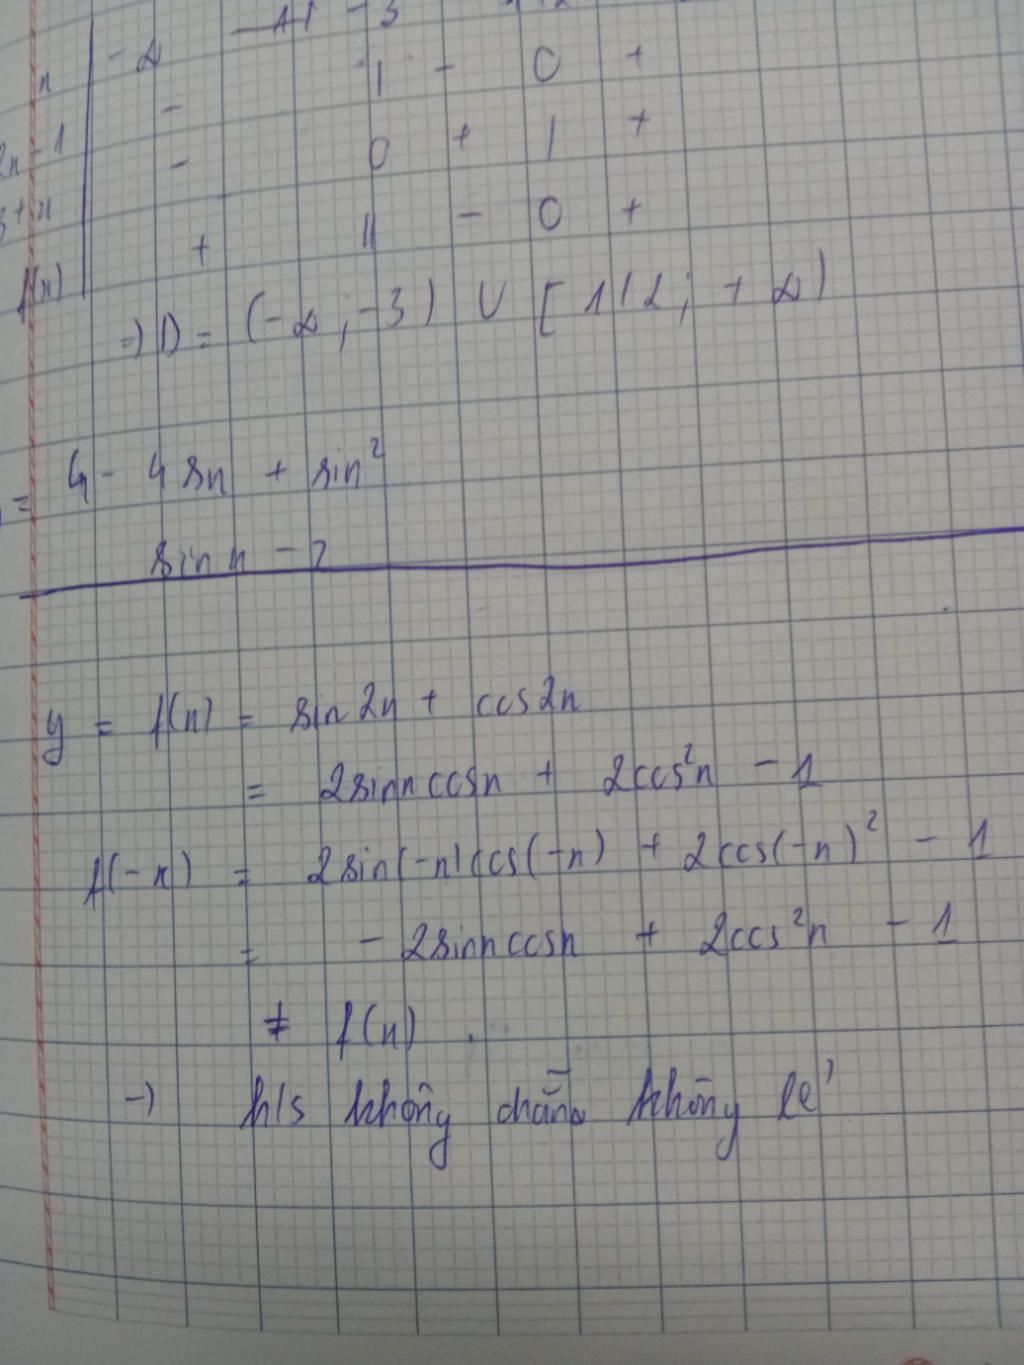 -∞ -3
x
- | - 0 +
2x-1
- 0 + | +
3+x
+ || - 0 +
f(x)
=) D = (-∞; -3) ∪ [1/2; +∞)
= 4 - 4 sn + sin²
sin x - 2
y = f(x) = sin2x + cos2x
= 2sinxcosx + 2cos²x - 1
f(-x) = 2sin(-x)cos(-x) + 2cos(-x)² - 1
= - 2sinxcosx + 2cos²x - 1
≠ f(x).
-) h/s không chẵn không lẻ